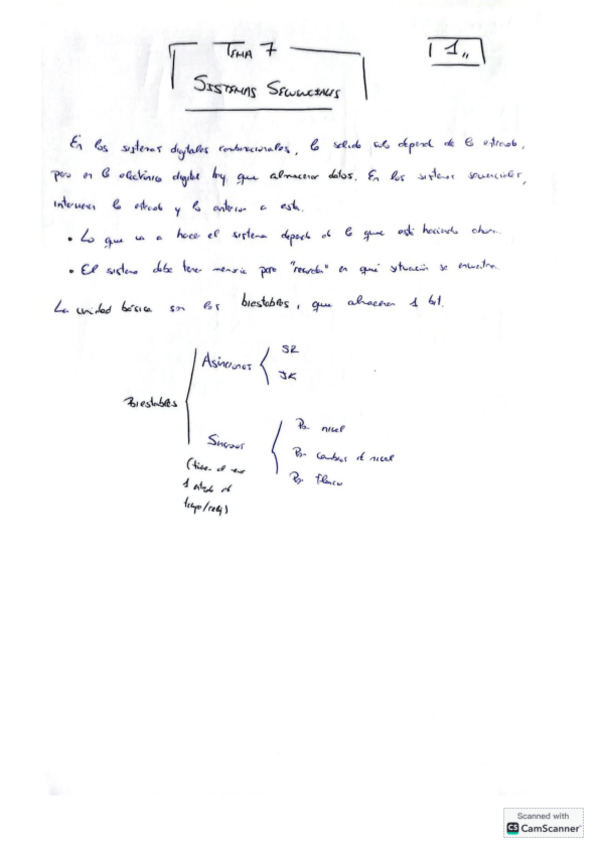 TEMA 7
1,,
SISTEMAS SECUENCIALES
En los sistemas digitales combinacionales, la salida solo depende de la entrada,
pero en la electrónica digital hay que almacenar datos. En los sistemas secuenciales,
intervienen la entrada y la anterior a esta.
• Lo que va a hacer el sistema depende de lo que esté haciendo ahora.
• El sistema debe tener memoria para "recordar" en qué situación se encuentra.
La unidad básica son los biestables, que almacenan 1 bit.
SR
Asíncronos
JK
Biestables
Por nivel
Síncronos
Por cambios de nivel
(tienen al menos
Por flanco
1 entrada de
Scanned with
CS CamScanner